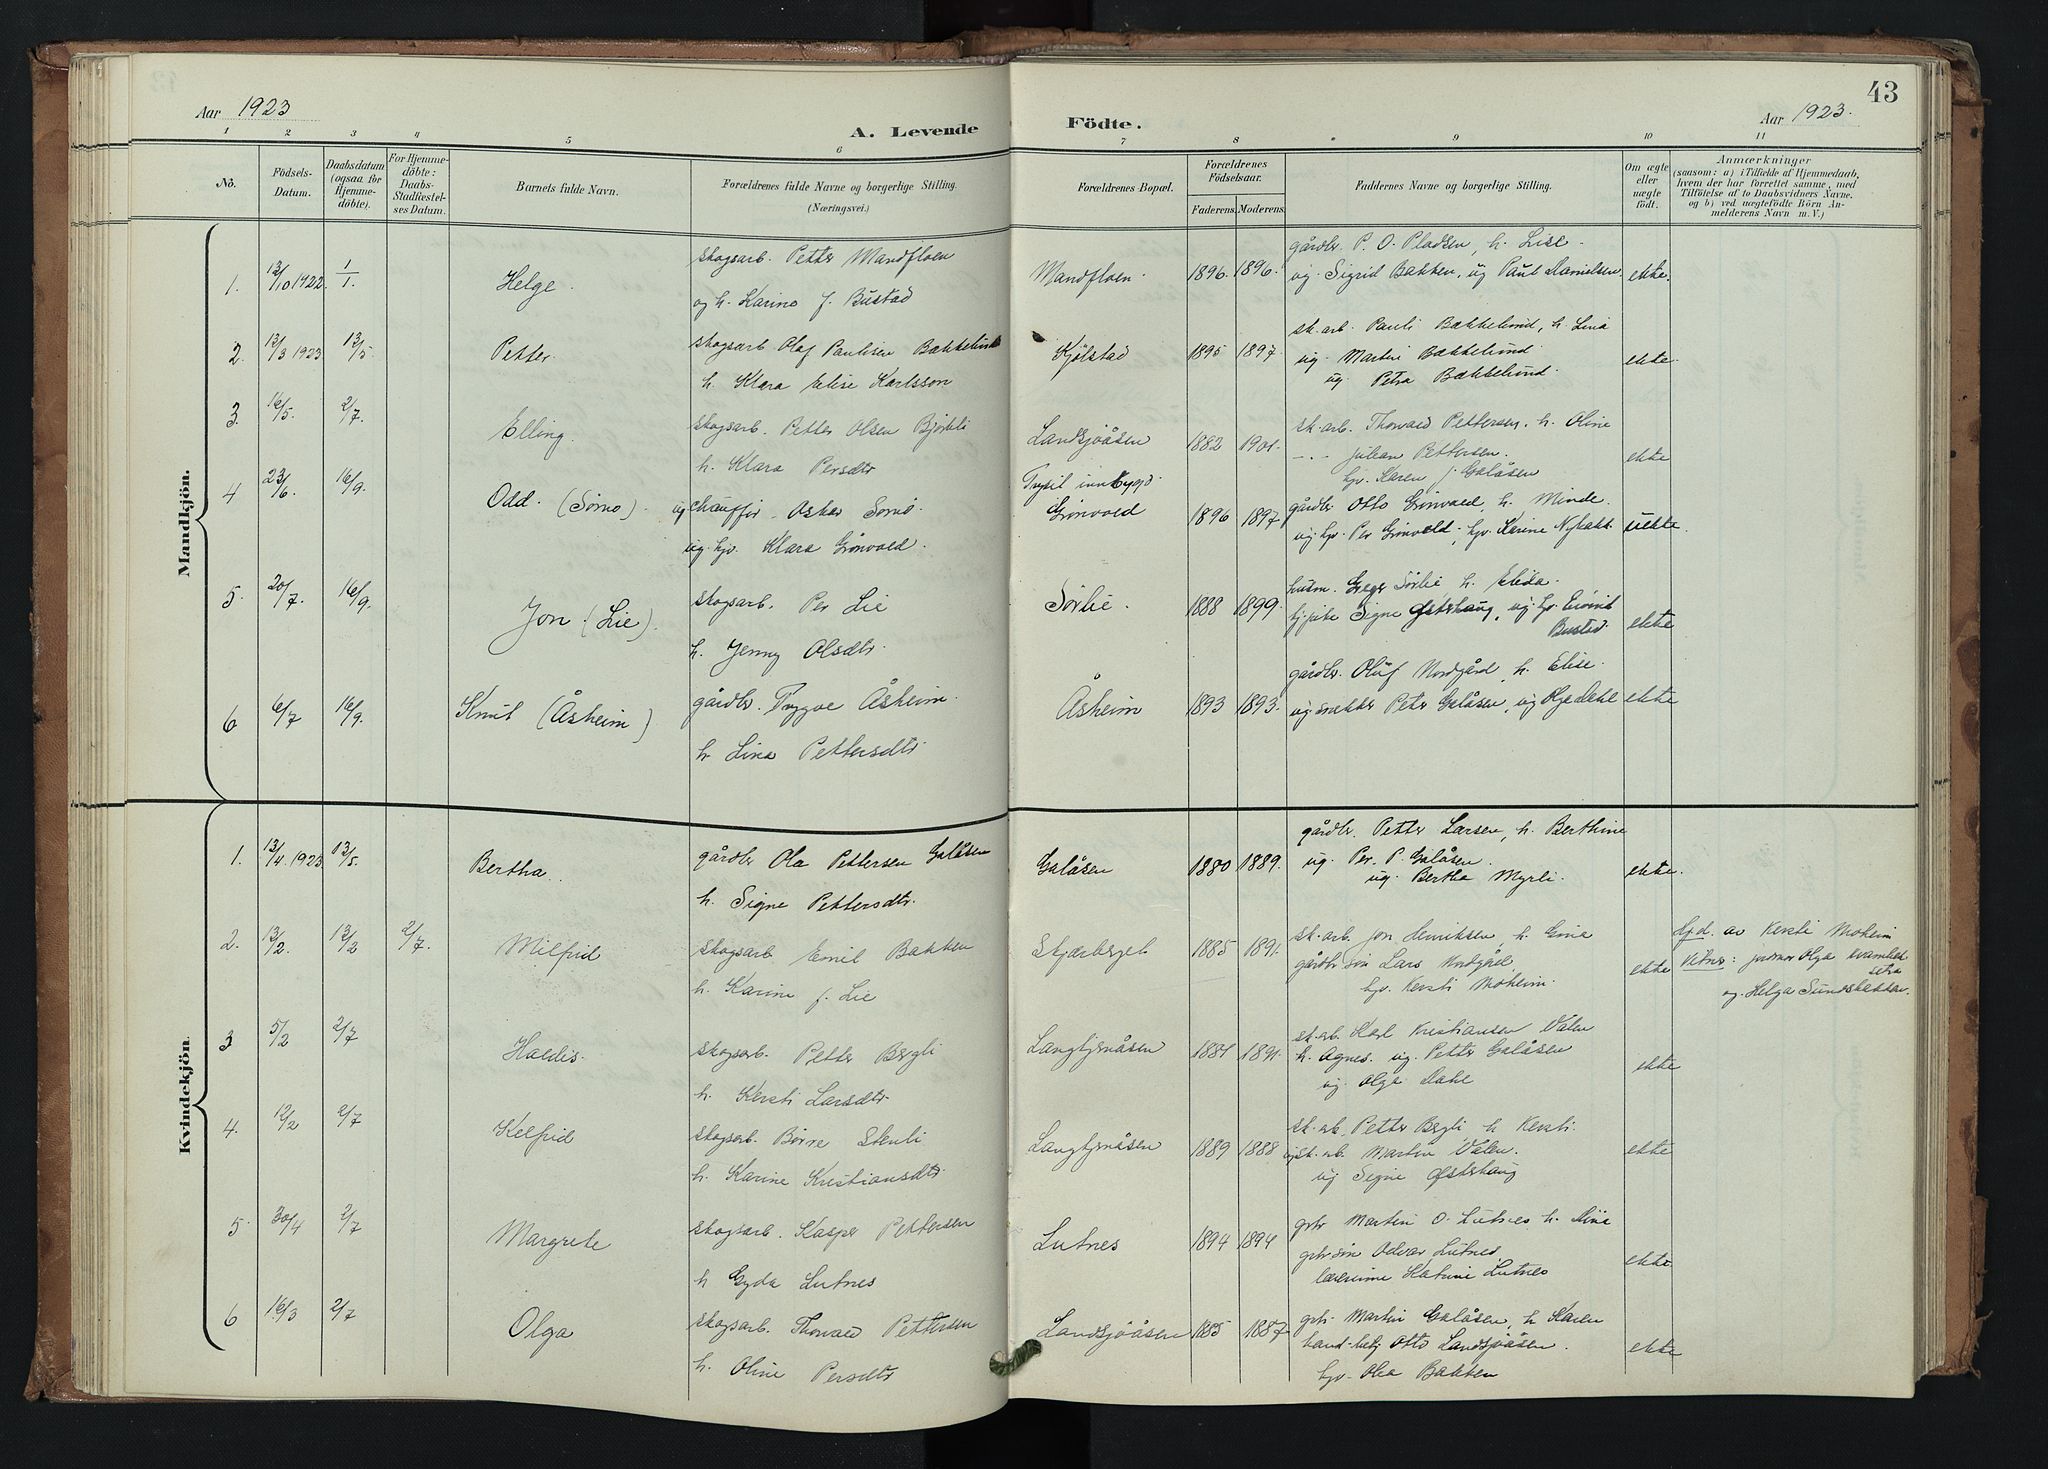 43
Aar 1923
A. Levende Födte.
Aar 1923.
1 2 3 4 5 6 7 8 9 10 11
No.
Födsels-Datum.
Daabsdatum (ogsaa for Hjemme-döbte).
For Hjemme-döbte: Daabs-Stadfæstel-ses Datum.
Barnets fulde Navn.
Forældrenes fulde Navne og borgerlige Stilling.
(Næringsvei.)
Forældrenes Bopæl.
Forældrenes Födselsaar.
Faderens. Moderens.
Faddernes Navne og borgerlige Stilling.
Om ægte eller uægte födt.
Anmærkninger
(saasom: a) i Tilfælde af Hjemmedaab,
hvem der har forrettet samme, med
Tilföielse af to Daabsvidners Navne.
og b) ved uægtefödte Börn An-
melderens Navn m. V.)
Mandkjön.
1. 13/10 1922. 1/1 Helge. skogsarb. Petter Mandfloen
og h. Karino f. Bustad
Mandfloen. 1896. 1896.
gårdbr. P. O. Pladsen, h. Lise.
ug. Sigrid Bakken, ug Paul Danielsen, ekte.
2. 13/3 1923 13/5 Petter. skogsarb Olaf Paulsen Bækkelund
h. Klara Elise Karlsson
Kjølstad 1895 1897
sk.arb. Pauli Bækkelund, h. Lina
ug. Martin Bækkelund
ug. Petra Bækkelund. ekte.
3. 16/5. 2/7. Elling. skogsarb. Petter Olsen Bjørkli
h. Klara Persdtr
Landsjøåsen 1882 1901.
sk.arb. Thorvald Pettersen, h. Oline
-.- Julian Pettersen.
hjv. Karen f Galåsen ekte
4 23/6. 16/9. Odd. (Sørno). ug chauffør Oskar Sørnø.
ug. hjv. Klara Grønvold.
Trysil innbygd
Grønvold 1896 1897
gårdbr Otto Grønvold, h. Minde.
ug. hjv. Per Grønvold, hjv. Karine Nybakk uekte.
5. 20/7. 16/9. Jon (Lie). skogsarb. Per Lie
h. Jenny Olsdtr.
Sørlie. 1888 1899
husm. Greger Sørlie h. Elida.
Signe Østerhaug, ug. hjv. Eivind
Bustad. ekte
6 6/7 16/9. Knut (Åsheim) gårdbr. Trygve Åsheim.
h. Lina Pettersdtr.
Åsheim 1893 1893.
gårdbr. Oluf Nordgård, h. Elise.
ug. snekker Peter Galåsen, ug Dahl ekte
Kvindekjön.
1. 13/4. 1923 13/5. Bertha. gårdbr Ola Pettersen Galåsen
h. Signe Pettersdtr.
Galåsen 1880 1889.
gårdbr. Petter Larsen, h. Berthine
ug. Per. P. Galåsen.
ug. Bertha Myrli. ekte.
2. 13/2. 13/2 2/7. Milfrid skogsarb Emil Bakken
h. Karine f. Lie
Skjærberget 1885 1891.
sk.arb. Jon Henriksen, h. Gina
gårdbr.søn Lars Nordgård,
hjv. Kersti Moheim. ekte
Hjd. av Kersti Moheim
Vitner: jordmor Olga
og Helga Sundsbakken.
3 5/2 2/7 Haldis. skogsarb. Petter Bergli
h. Kersti Larsdtr
Langtjernåsen 1881 1891.
sk.arb. Karl Kristiansen Vålen
h. Agnes. ug. Petter Galåsen
ug Olga Dahl ekte
4. 12/2 2/7 Kelfrid skogsarb. Børre Stenli
h. Karine Kristiansdtr.
Langtjernåsen 1889 1888
sk.arb. Petter Bergli h Kersti.
ug sk.arb. Martin Vålen.
ug Signe Østerhaug ekte
5. 30/4 2/7 Margrete skogsarb. Kasper Pettersen
h Gyda Lutnes
Lutnes 1894 1894
gbr Martin O. Lutnes h.
gbr.søn Odvar Lutnes
lærerinne Katrine Lutnes ekte
6 16/3 2/7 Olga skogsarb. Thorvald Pettersen
h. Oline Persdtr
Landsjøåsen 1885 1887
gbr. Martin Galåsen, h Karen
Otto Landsjøåsen.
hjv. Olea Bakken ekte